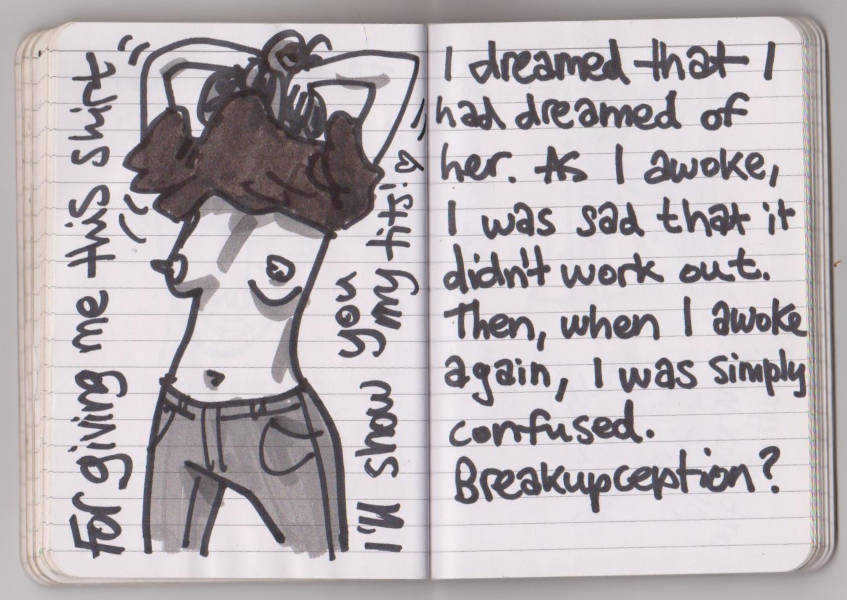 For giving me this shirt
I'll show you
my tits! ♡
I dreamed that I
had dreamed of
her. As I awoke,
I was sad that it
didn't work out.
Then, when I awoke
again, I was simply
confused.
Breakupception?